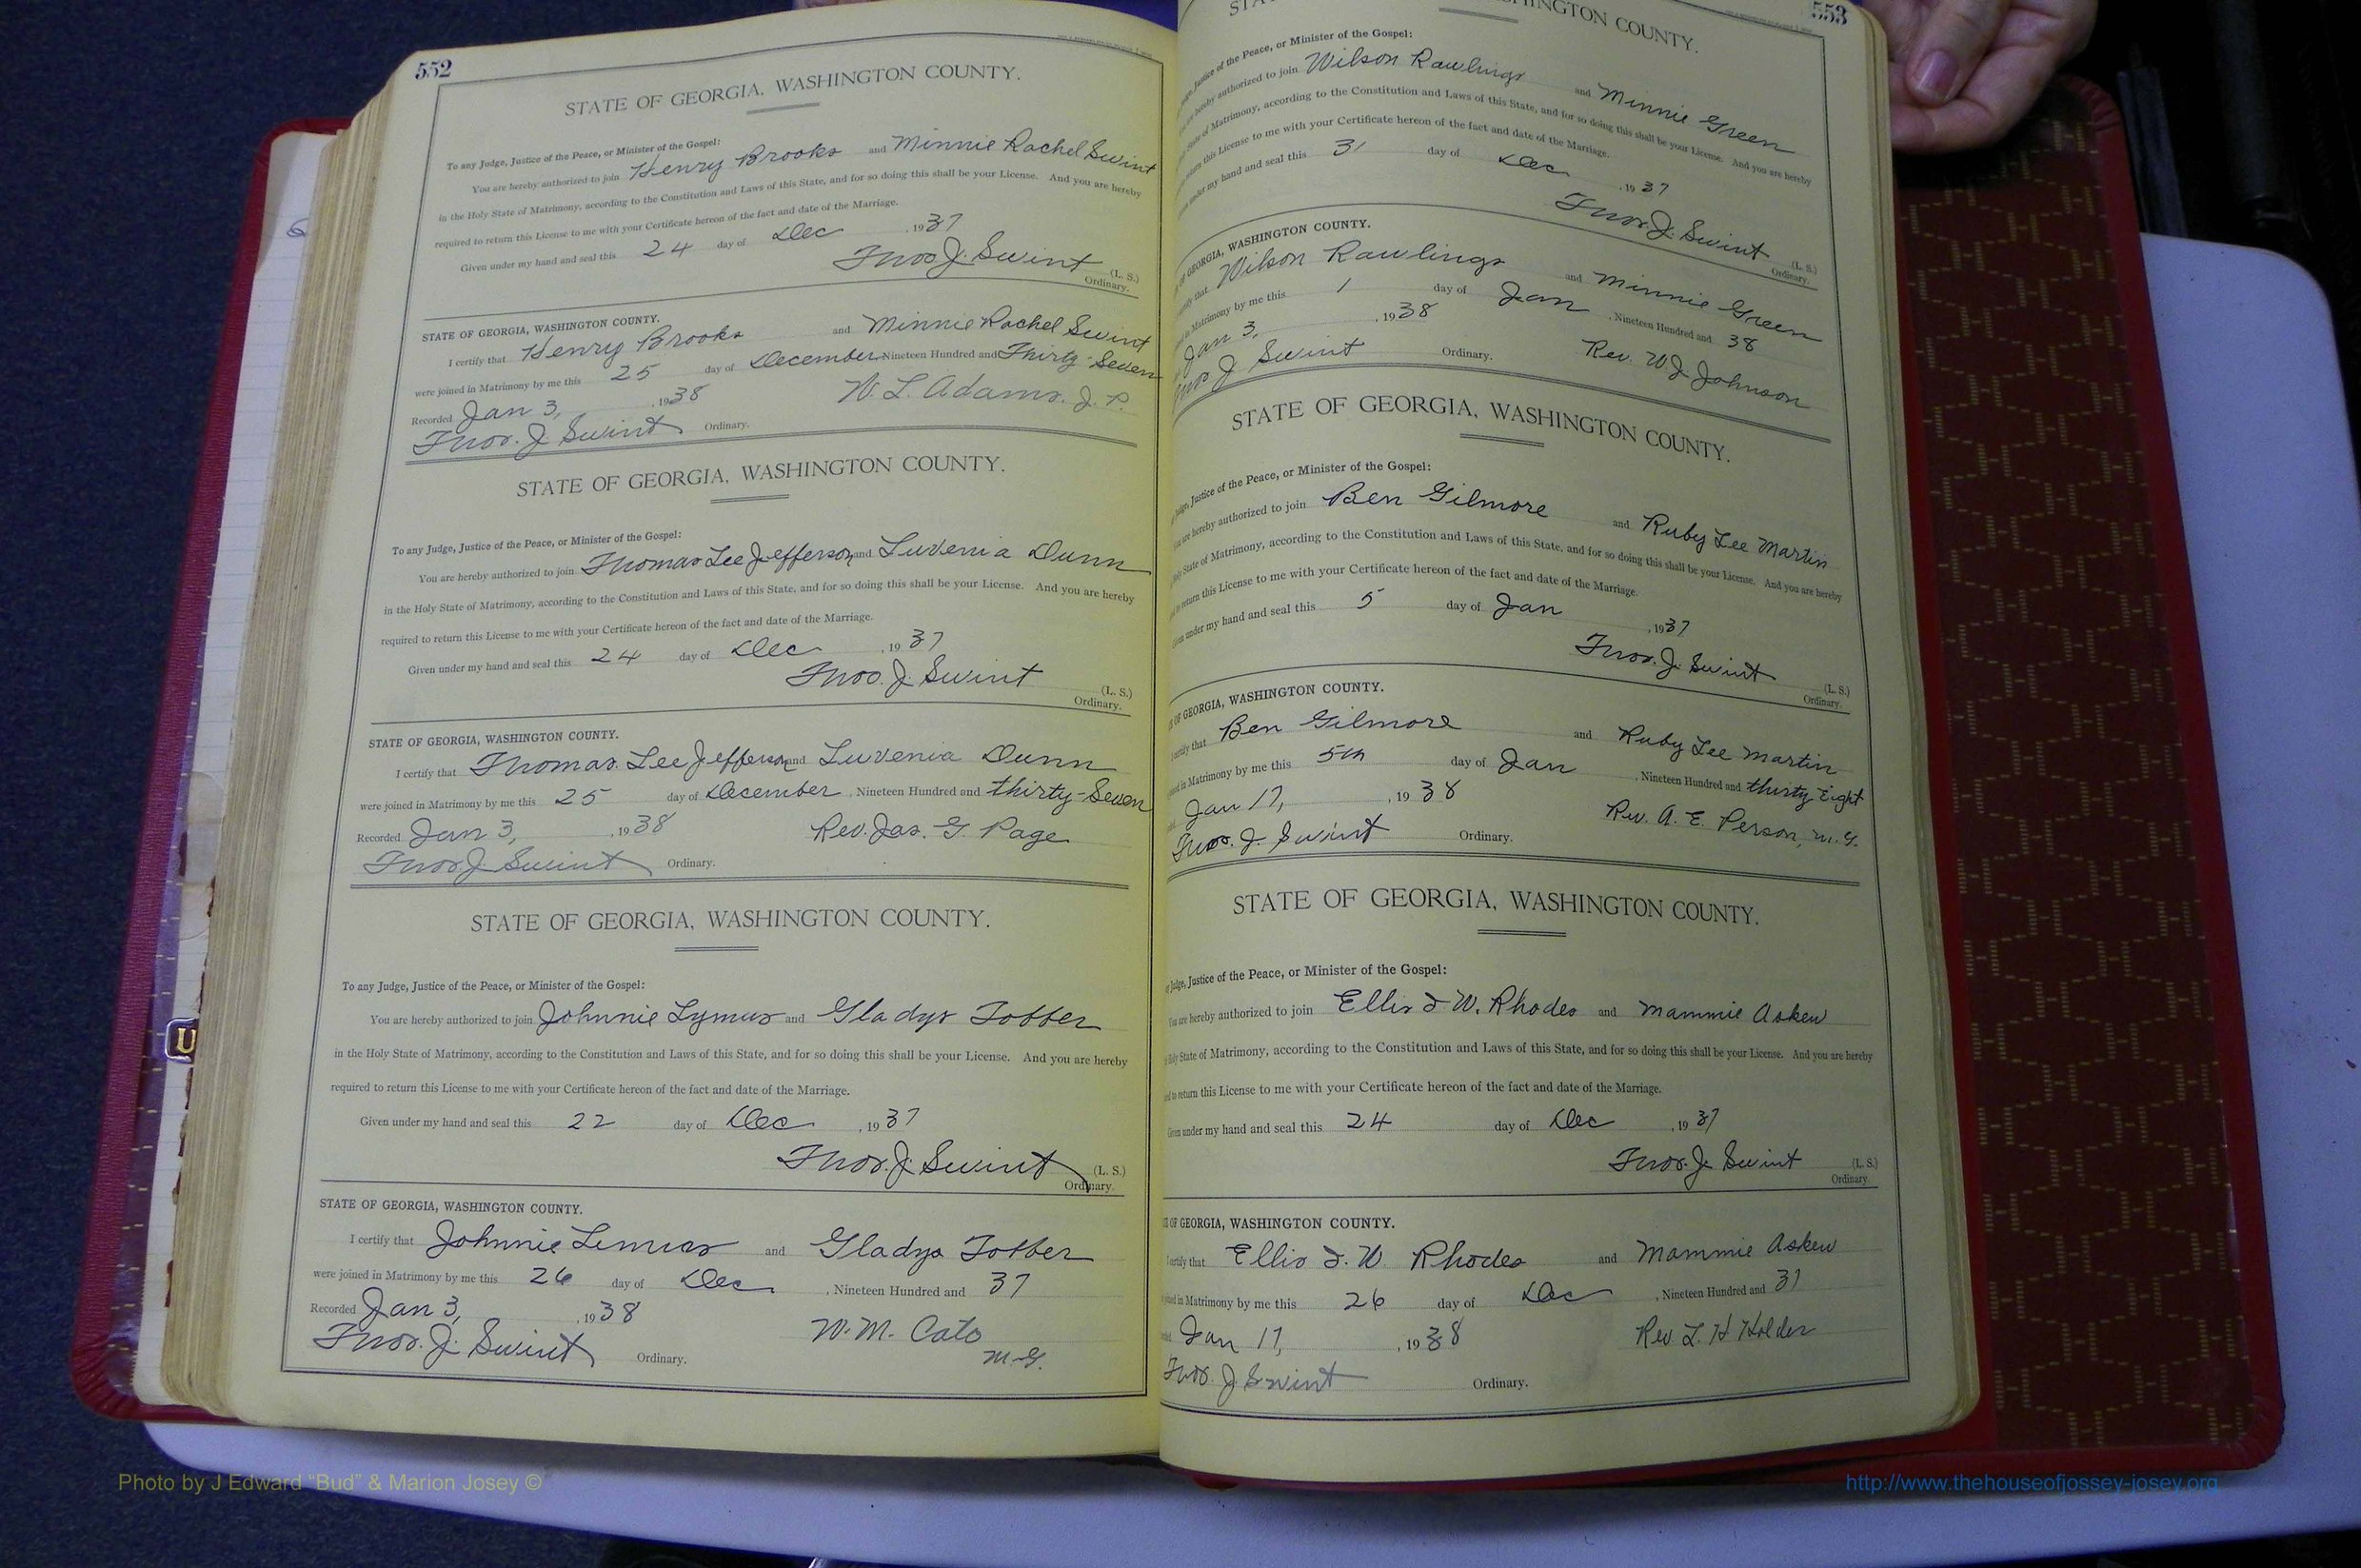 552
STATE OF GEORGIA, WASHINGTON COUNTY.
To any Judge, Justice of the Peace, or Minister of the Gospel:
You are hereby authorized to join Henry Brooks and Minnie Rachel Swint
in the Holy State of Matrimony, according to the Constitution and Laws of this State, and for so doing this shall be your License. And you are hereby
required to return this License to me with your Certificate hereon of the fact and date of the Marriage.
Given under my hand and seal this 24 day of Dec , 1937
Thos. J. Swint (L. S.)
Ordinary.
STATE OF GEORGIA, WASHINGTON COUNTY.
I certify that Henry Brooks and Minnie Rachel Swint
were joined in Matrimony by me this 25 day of December Nineteen Hundred and Thirty-Seven
Recorded Jan 3, , 1938 W. L. Adams. J. P.
Thos. J. Swint Ordinary.
STATE OF GEORGIA, WASHINGTON COUNTY.
To any Judge, Justice of the Peace, or Minister of the Gospel:
You are hereby authorized to join Thomas Lee Jefferson and Luvenia Dunn
in the Holy State of Matrimony, according to the Constitution and Laws of this State, and for so doing this shall be your License. And you are hereby
required to return this License to me with your Certificate hereon of the fact and date of the Marriage.
Given under my hand and seal this 24 day of Dec , 1937
Thos. J. Swint (L. S.)
Ordinary.
STATE OF GEORGIA, WASHINGTON COUNTY.
I certify that Thomas. Lee Jefferson and Luvenia Dunn
were joined in Matrimony by me this 25 day of December , Nineteen Hundred and thirty-Seven
Recorded Jan 3, , 1938 Rev. Jas. G. Page
Thos. J. Swint Ordinary.
STATE OF GEORGIA, WASHINGTON COUNTY.
To any Judge, Justice of the Peace, or Minister of the Gospel:
You are hereby authorized to join Johnnie Lymus and Gladys Tobber
in the Holy State of Matrimony, according to the Constitution and Laws of this State, and for so doing this shall be your License. And you are hereby
required to return this License to me with your Certificate hereon of the fact and date of the Marriage.
Given under my hand and seal this 22 day of Dec , 1937
Thos. J. Swint (L. S.)
Ordinary.
STATE OF GEORGIA, WASHINGTON COUNTY.
I certify that Johnnie Lemus and Gladys Totber
were joined in Matrimony by me this 26 day of Dec , Nineteen Hundred and 37
Recorded Jan 3, , 1938 W. M. Cato
M. G.
Thos. J. Swint Ordinary.
553
COUNTY.
Justice of the Peace, or Minister of the Gospel:
hereby authorized to join Wilson Rawlings and Minnie Green
State of Matrimony, according to the Constitution and Laws of this State, and for so doing this shall be your License. And you are hereby
return this License to me with your Certificate hereon of the fact and date of the Marriage.
under my hand and seal this 31 day of Dec , 1937
Thos. J. Swint (L. S.)
Ordinary.
OF GEORGIA, WASHINGTON COUNTY.
certify that Wilson Rawlings and Minnie Green
in Matrimony by me this 1 day of Jan , Nineteen Hundred and 38
Jan 3, , 1938 Rev. W. J. Johnson
Thos J Swint Ordinary.
STATE OF GEORGIA, WASHINGTON COUNTY.
Judge, Justice of the Peace, or Minister of the Gospel:
You are hereby authorized to join Ben Gilmore and Ruby Lee Martin
Holy State of Matrimony, according to the Constitution and Laws of this State, and for so doing this shall be your License. And you are hereby
to return this License to me with your Certificate hereon of the fact and date of the Marriage.
Given under my hand and seal this 5 day of Jan , 1937
Thos. J. Swint (L. S.)
Ordinary.
OF GEORGIA, WASHINGTON COUNTY.
I certify that Ben Gilmore and Ruby Lee Martin
in Matrimony by me this 5th day of Jan , Nineteen Hundred and thirty Eight
Jan 17, , 1938 Rev. A. E. Person, M. G.
Thos. J. Swint Ordinary.
STATE OF GEORGIA, WASHINGTON COUNTY.
Judge, Justice of the Peace, or Minister of the Gospel:
You are hereby authorized to join Ellis W. Rhodes and Mammie Askew
Holy State of Matrimony, according to the Constitution and Laws of this State, and for so doing this shall be your License. And you are hereby
to return this License to me with your Certificate hereon of the fact and date of the Marriage.
Given under my hand and seal this 24 day of Dec , 1937
Thos. J. Swint (L. S.)
Ordinary.
OF GEORGIA, WASHINGTON COUNTY.
I certify that Ellis W Rhodes and Mammie Askew
joined in Matrimony by me this 26 day of Dec , Nineteen Hundred and 37
Jan 17, , 1938 Rev L. H Holder
Thos. J. Swint Ordinary.
Photo by J Edward “Bud” & Marion Josey ©
http://www.thehouseofjossey-josey.org